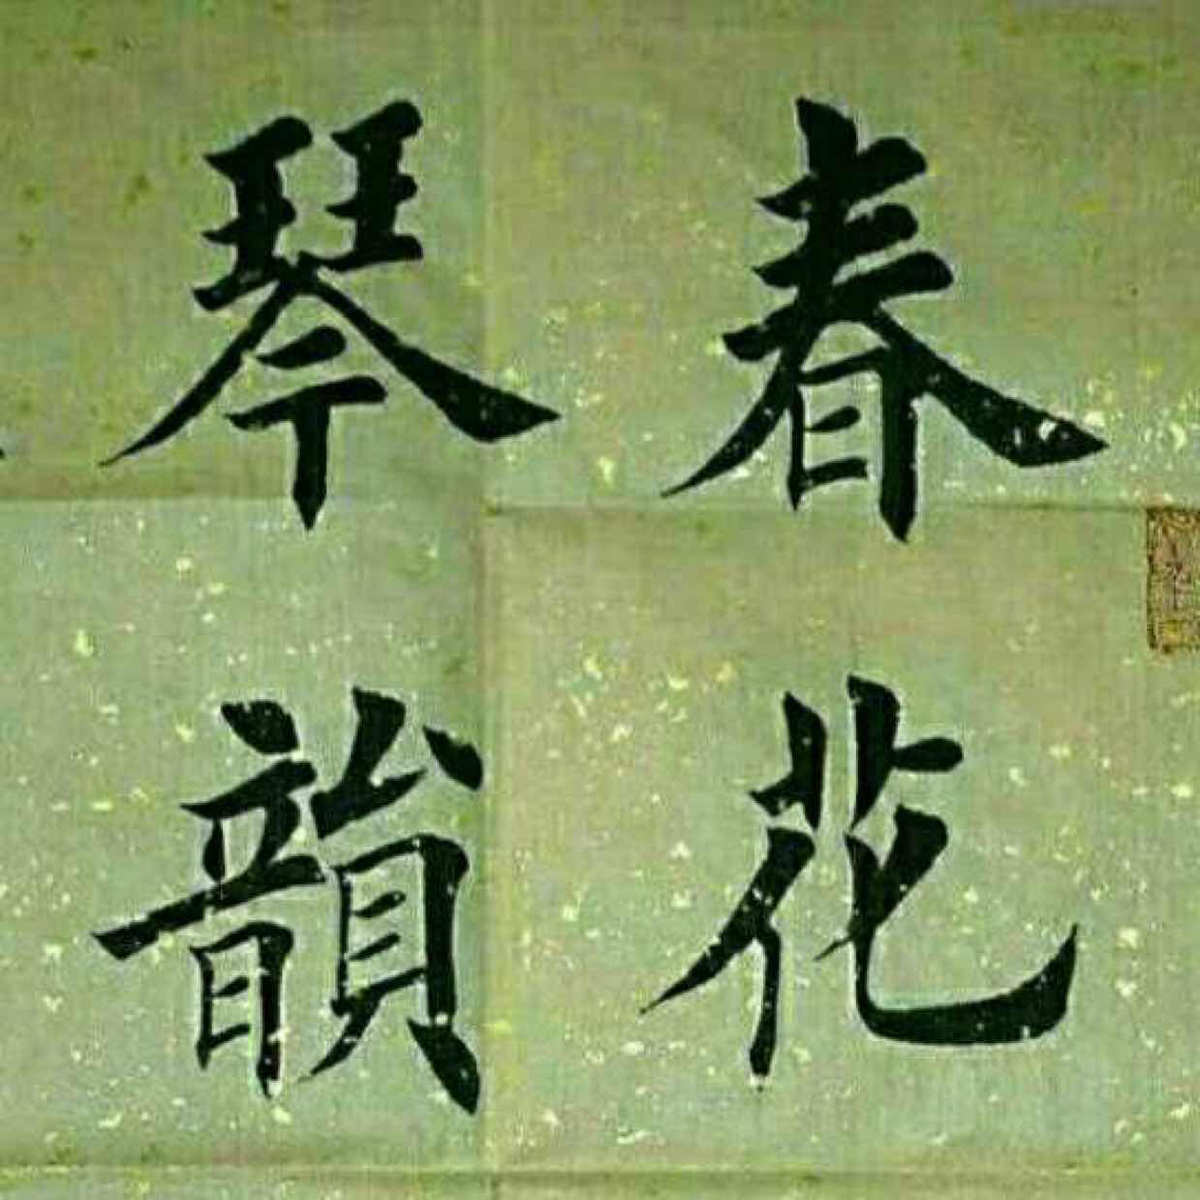 春花
琴韻